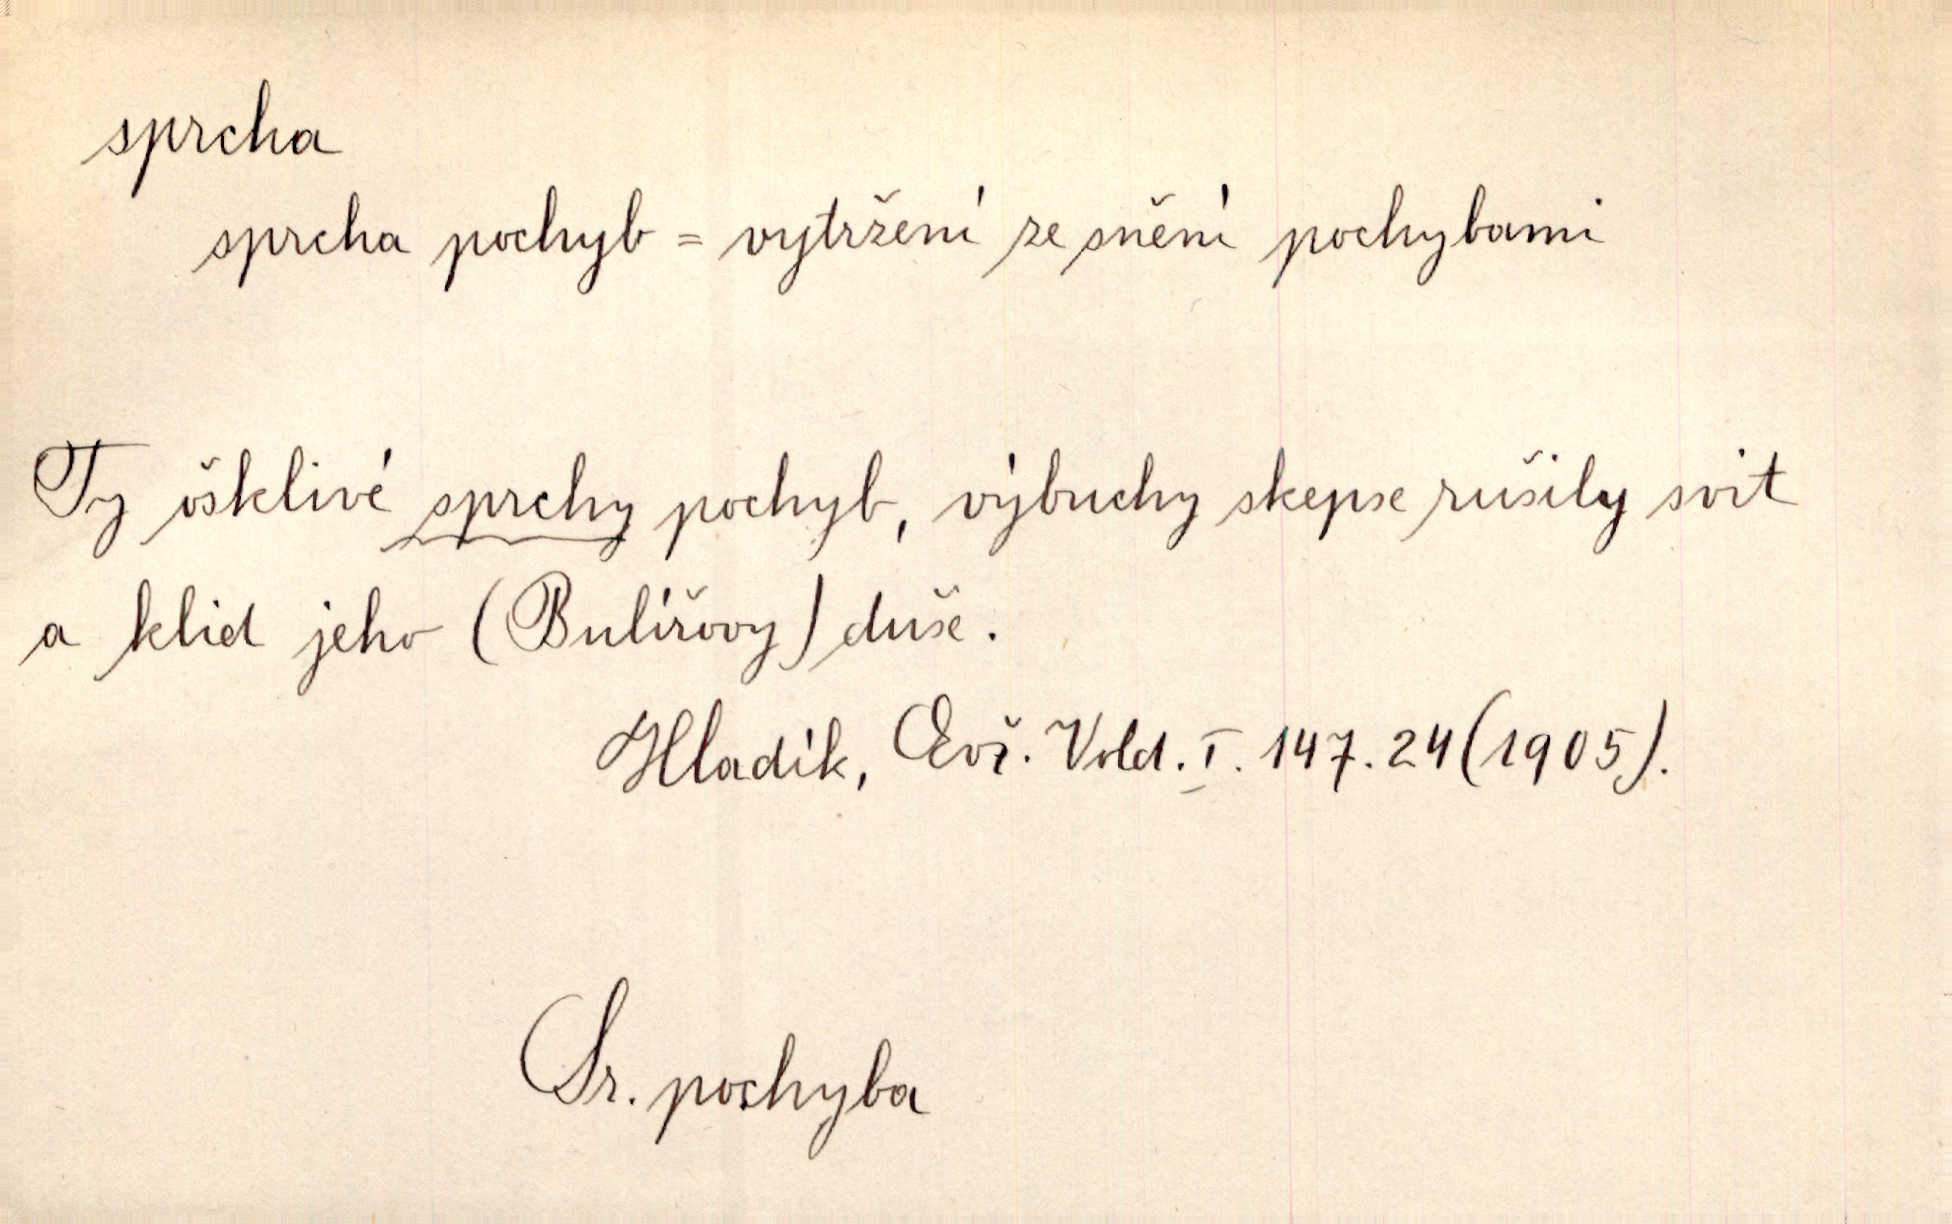 sprcha
sprcha pochyb = vytržení ze snění pochybami
Ty ošklivé sprchy pochyb, výbuchy skepse rušily svit
a klid jeho (Bulířovy) duše.
Hladík, Evž. Vold. I. 147.24 (1905).
Sr. pochyba